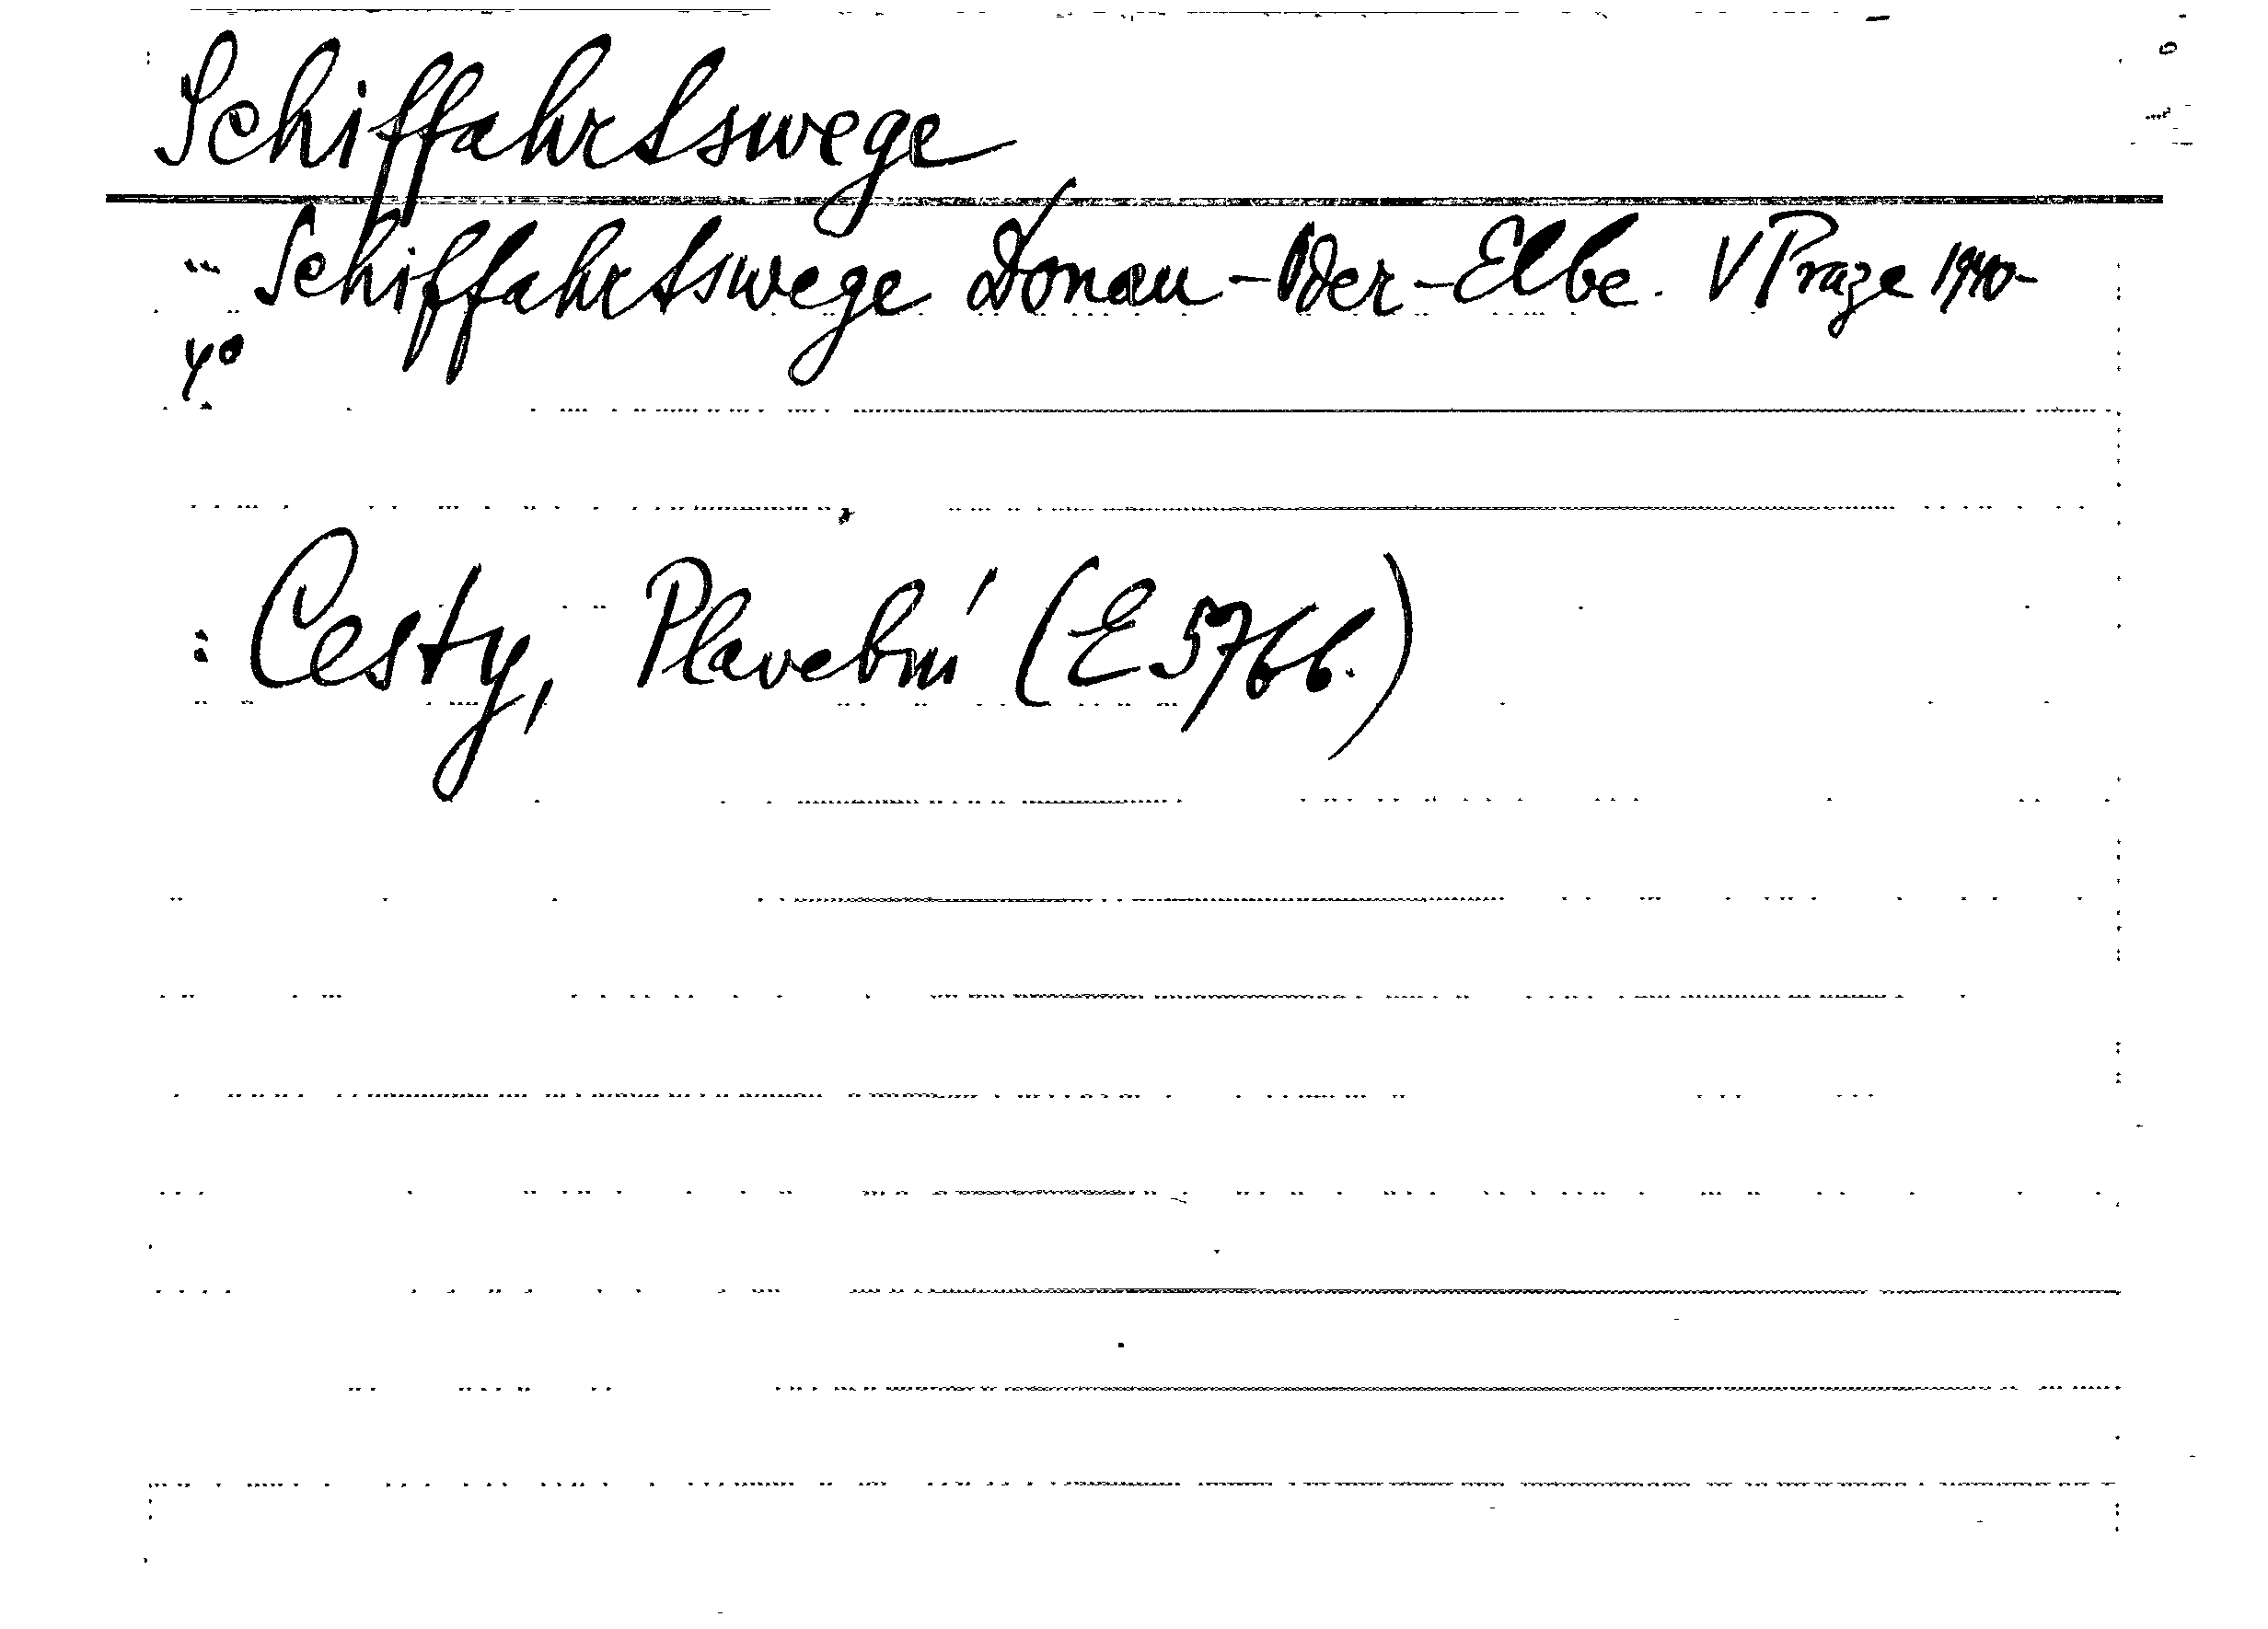 Schiffahrtswege
... Schiffahrtswege Donau-Oder-Elbe. V Praze 1940-
4°
: Cesty, Plavební (E 576b.)